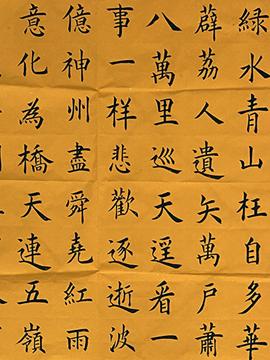 綠水青山枉自多華
薜荔人遺矢萬戶蕭
八萬里巡天遥看一
事一样悲歡逐逝波
億神州盡舜堯紅雨
意化為橋天連五嶺